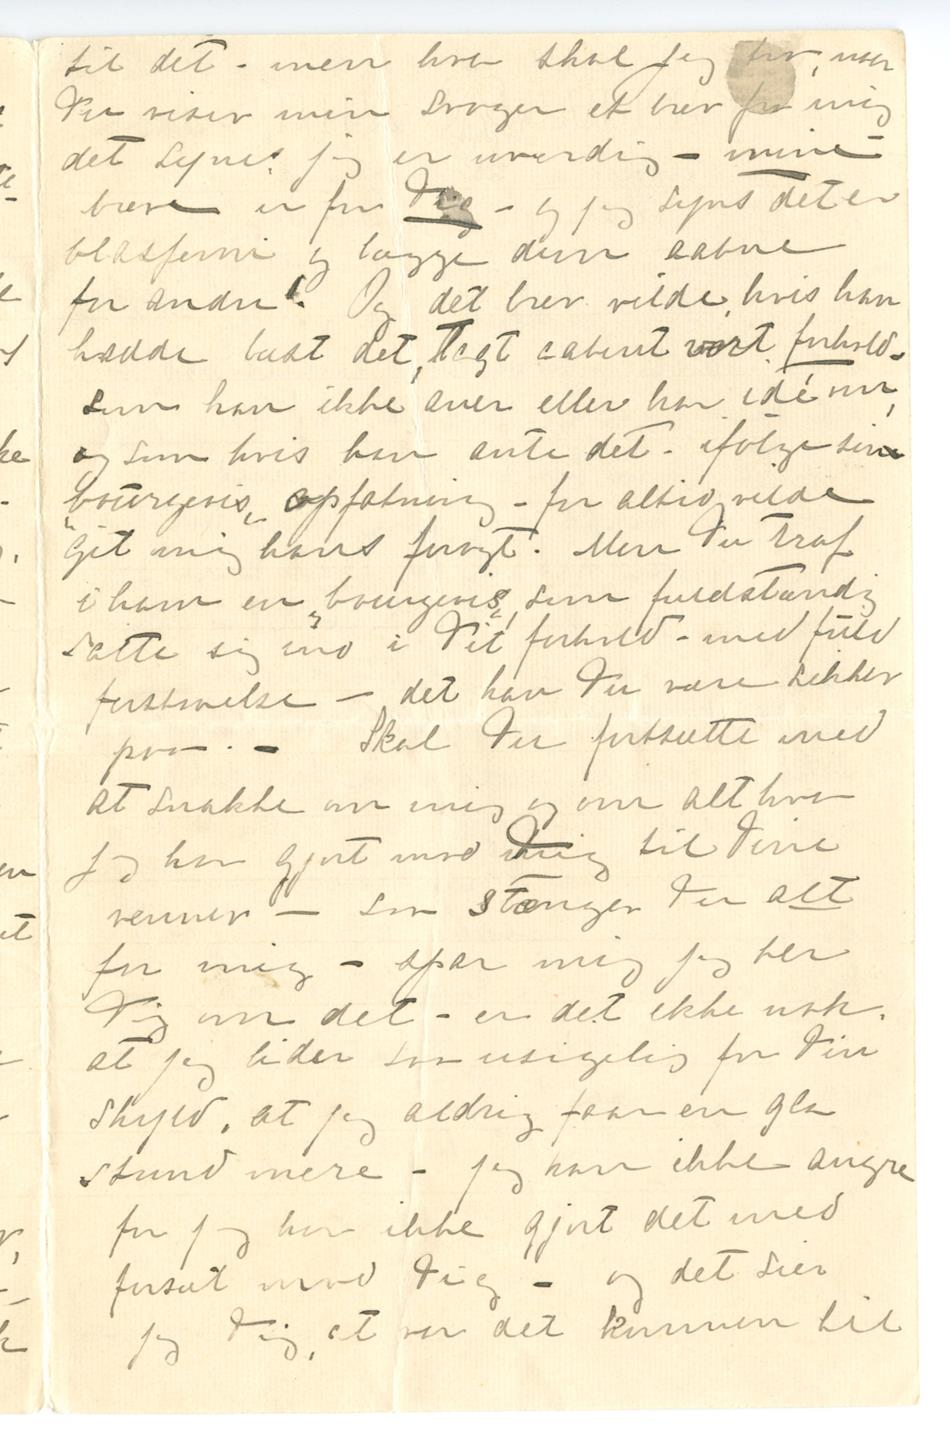 til det – men hva skal jeg tro, naar
Du viser min svoger et brev fra mig
det synes jeg er uverdig – mine
breve er for Dig – og jeg syns det er
blasfemi og lægge dem aabne
for andre! Og det brev vilde, hvis han
hadde læst det, lagt aabent vort forhold –
som han ikke aner eller har idé om,
og som hvis han ante det – ifølge sin
„bourgeois„ opfatning – for altid vilde
git mig hans foragt. Men Du traf
i ham en „bourgeois„ som fuldstændig
satte sig ind i Dit forhold – med fuld
forstaaelse – det kan Du være sikker
paa. – Skal Du fortsætte med
at snakke om mig og om alt hva
jeg har gjort mod Dig til Dine
venner – saa stænger Du alt
for mig – spar mig jeg ber
Dig om det – er det ikke nok,
at jeg lider saa usigelig for Din
skyld, at jeg aldrig faar en gla
stund mere – jeg kan ikke angre
for jeg har ikke gjort det med
forsæt mod Dig – og det sier
jeg Dig, at var det kommen til